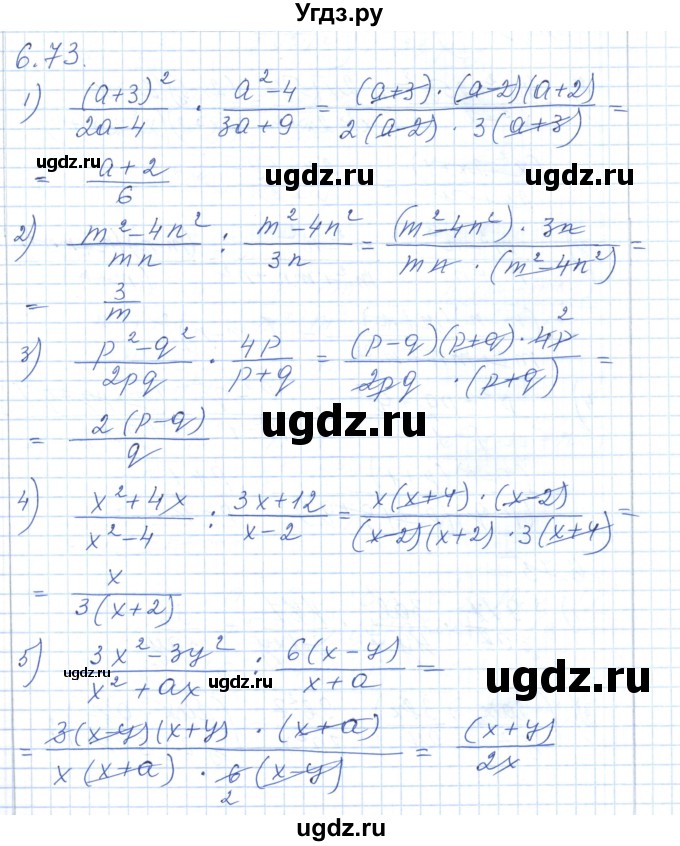 Угдз.ру
6.73.
1) (a+3)²/(2a-4) · (a²-4)/(3a+9) = ((a+3)·(a-2)(a+2))/(2(a-2)·3(a+3)) =
= (a+2)/6
ugdz.ru ugdz.ru ugdz.ru
2) (m²-4n²)/(mn) : (m²-4n²)/(3n) = ((m²-4n²)·3n)/(mn·(m²-4n²)) =
= 3/m
3) (p²-q²)/(2pq) · 4p/(p+q) = ((p-q)(p+q)·4p 2)/(2pq·(p+q)) =
ugdz.ru
= 2(p-q)/q
4) (x²+4x)/(x²-4) : (3x+12)/(x-2) = (x(x+4)·(x-2))/((x-2)(x+2)·3(x+4)) =
= x/(3(x+2))
5) (3x²-3y²)/(x²+ax) : 6(x-y)/(x+a) =
ugdz.ru ugdz.ru ugdz.ru
= (3(x-y)(x+y)·(x+a))/(x(x+a)·6(x-y)) = (x+y)/2x
2
ugdz.ru